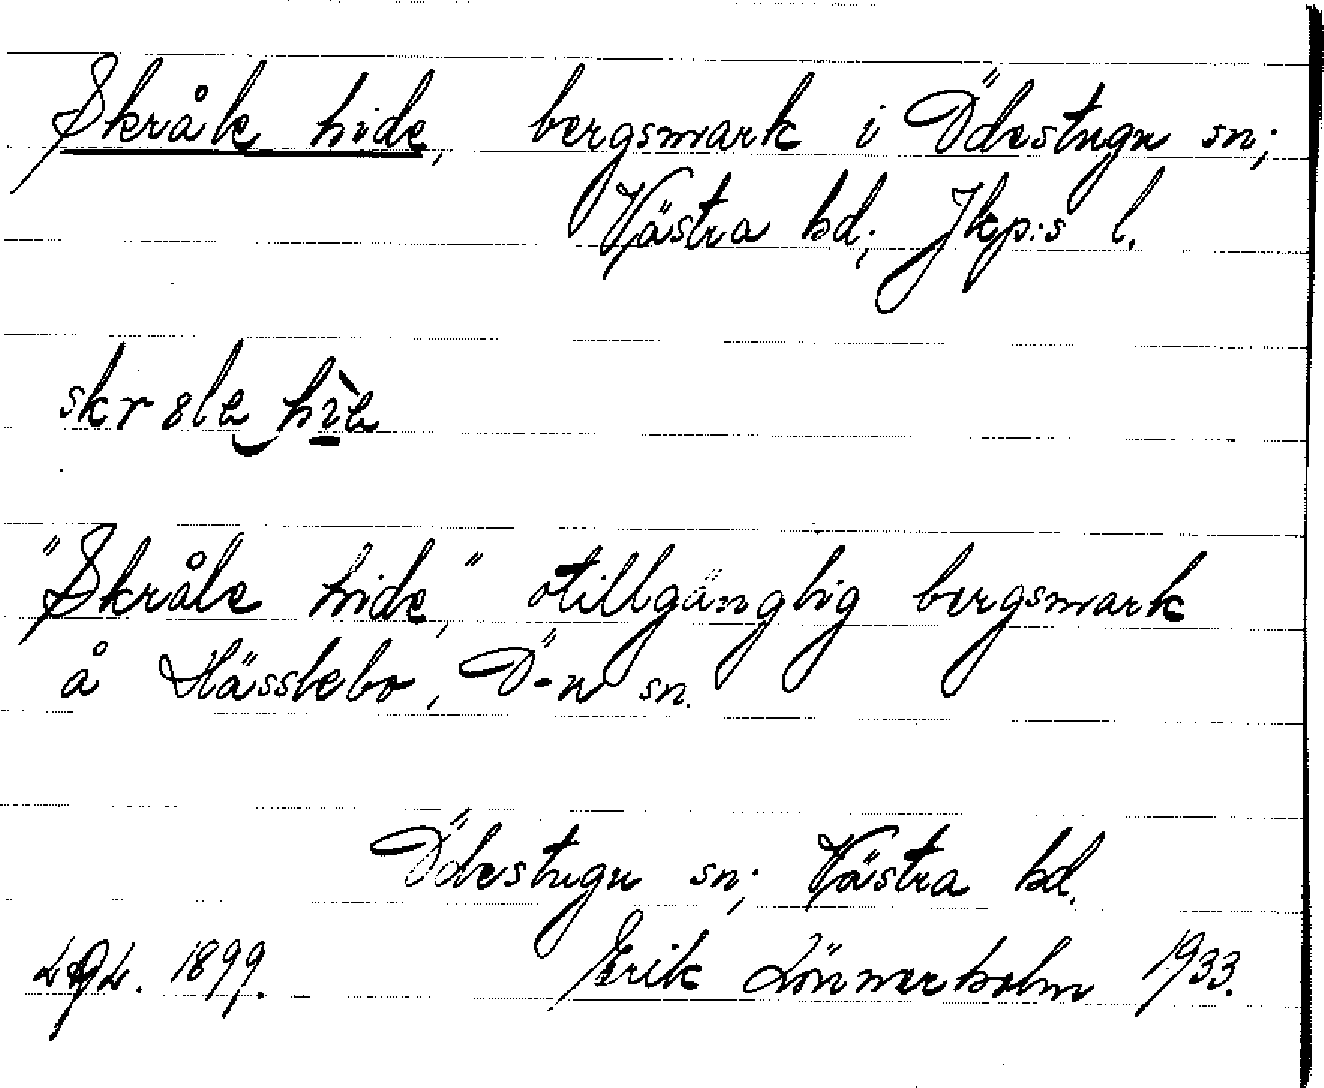 Skråle hide, bergsmark i Ödestugu sn;
Västra hd; Jkp:s l.
"Skråle hide," otillgänglig bergsmark
å Hässlebo, Ö-u sn.
Ödestugu sn; Västra hd.
1899. Erik Lönnerholm 1933.